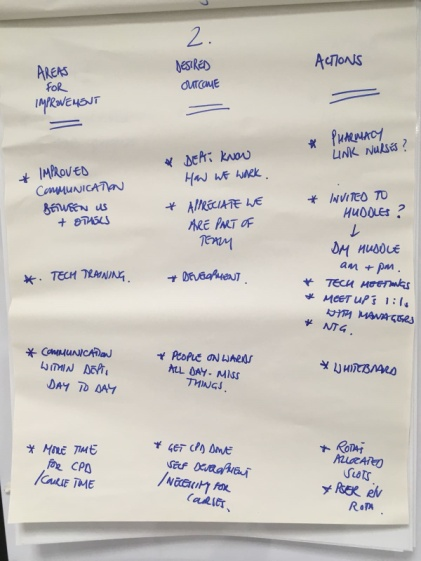 2.
AREAS
FOR
IMPROVEMENT
DESIRED
OUTCOME
ACTIONS
* IMPROVED
COMMUNICATION
BETWEEN US
+ OTHERS
* DEPT. KNOW
HOW WE WORK.
* APPRECIATE WE
ARE PART OF
TEAM
* PHARMACY
LINK NURSES?
* INVITED TO
HUDDLES?
↓
DM HUDDLE
am + pm.
* TECH TRAINING.
* DEVELOPMENT.
* TECH MEETINGS
* MEET UP'S 1:1s
WITH MANAGERS
* NTG.
* COMMUNICATION
WITHIN DEPT.
DAY TO DAY
* PEOPLE ON WARDS
ALL DAY. MISS
THINGS.
* WHITEBOARD
* MORE TIME
FOR CPD
/COURSE TIME
* GET CPD DONE
SELF DEVELOPMENT
/NECESSITY FOR
COURSES.
* ROTA
ALLOCATED
SLOTS.
* IN
ROTA.